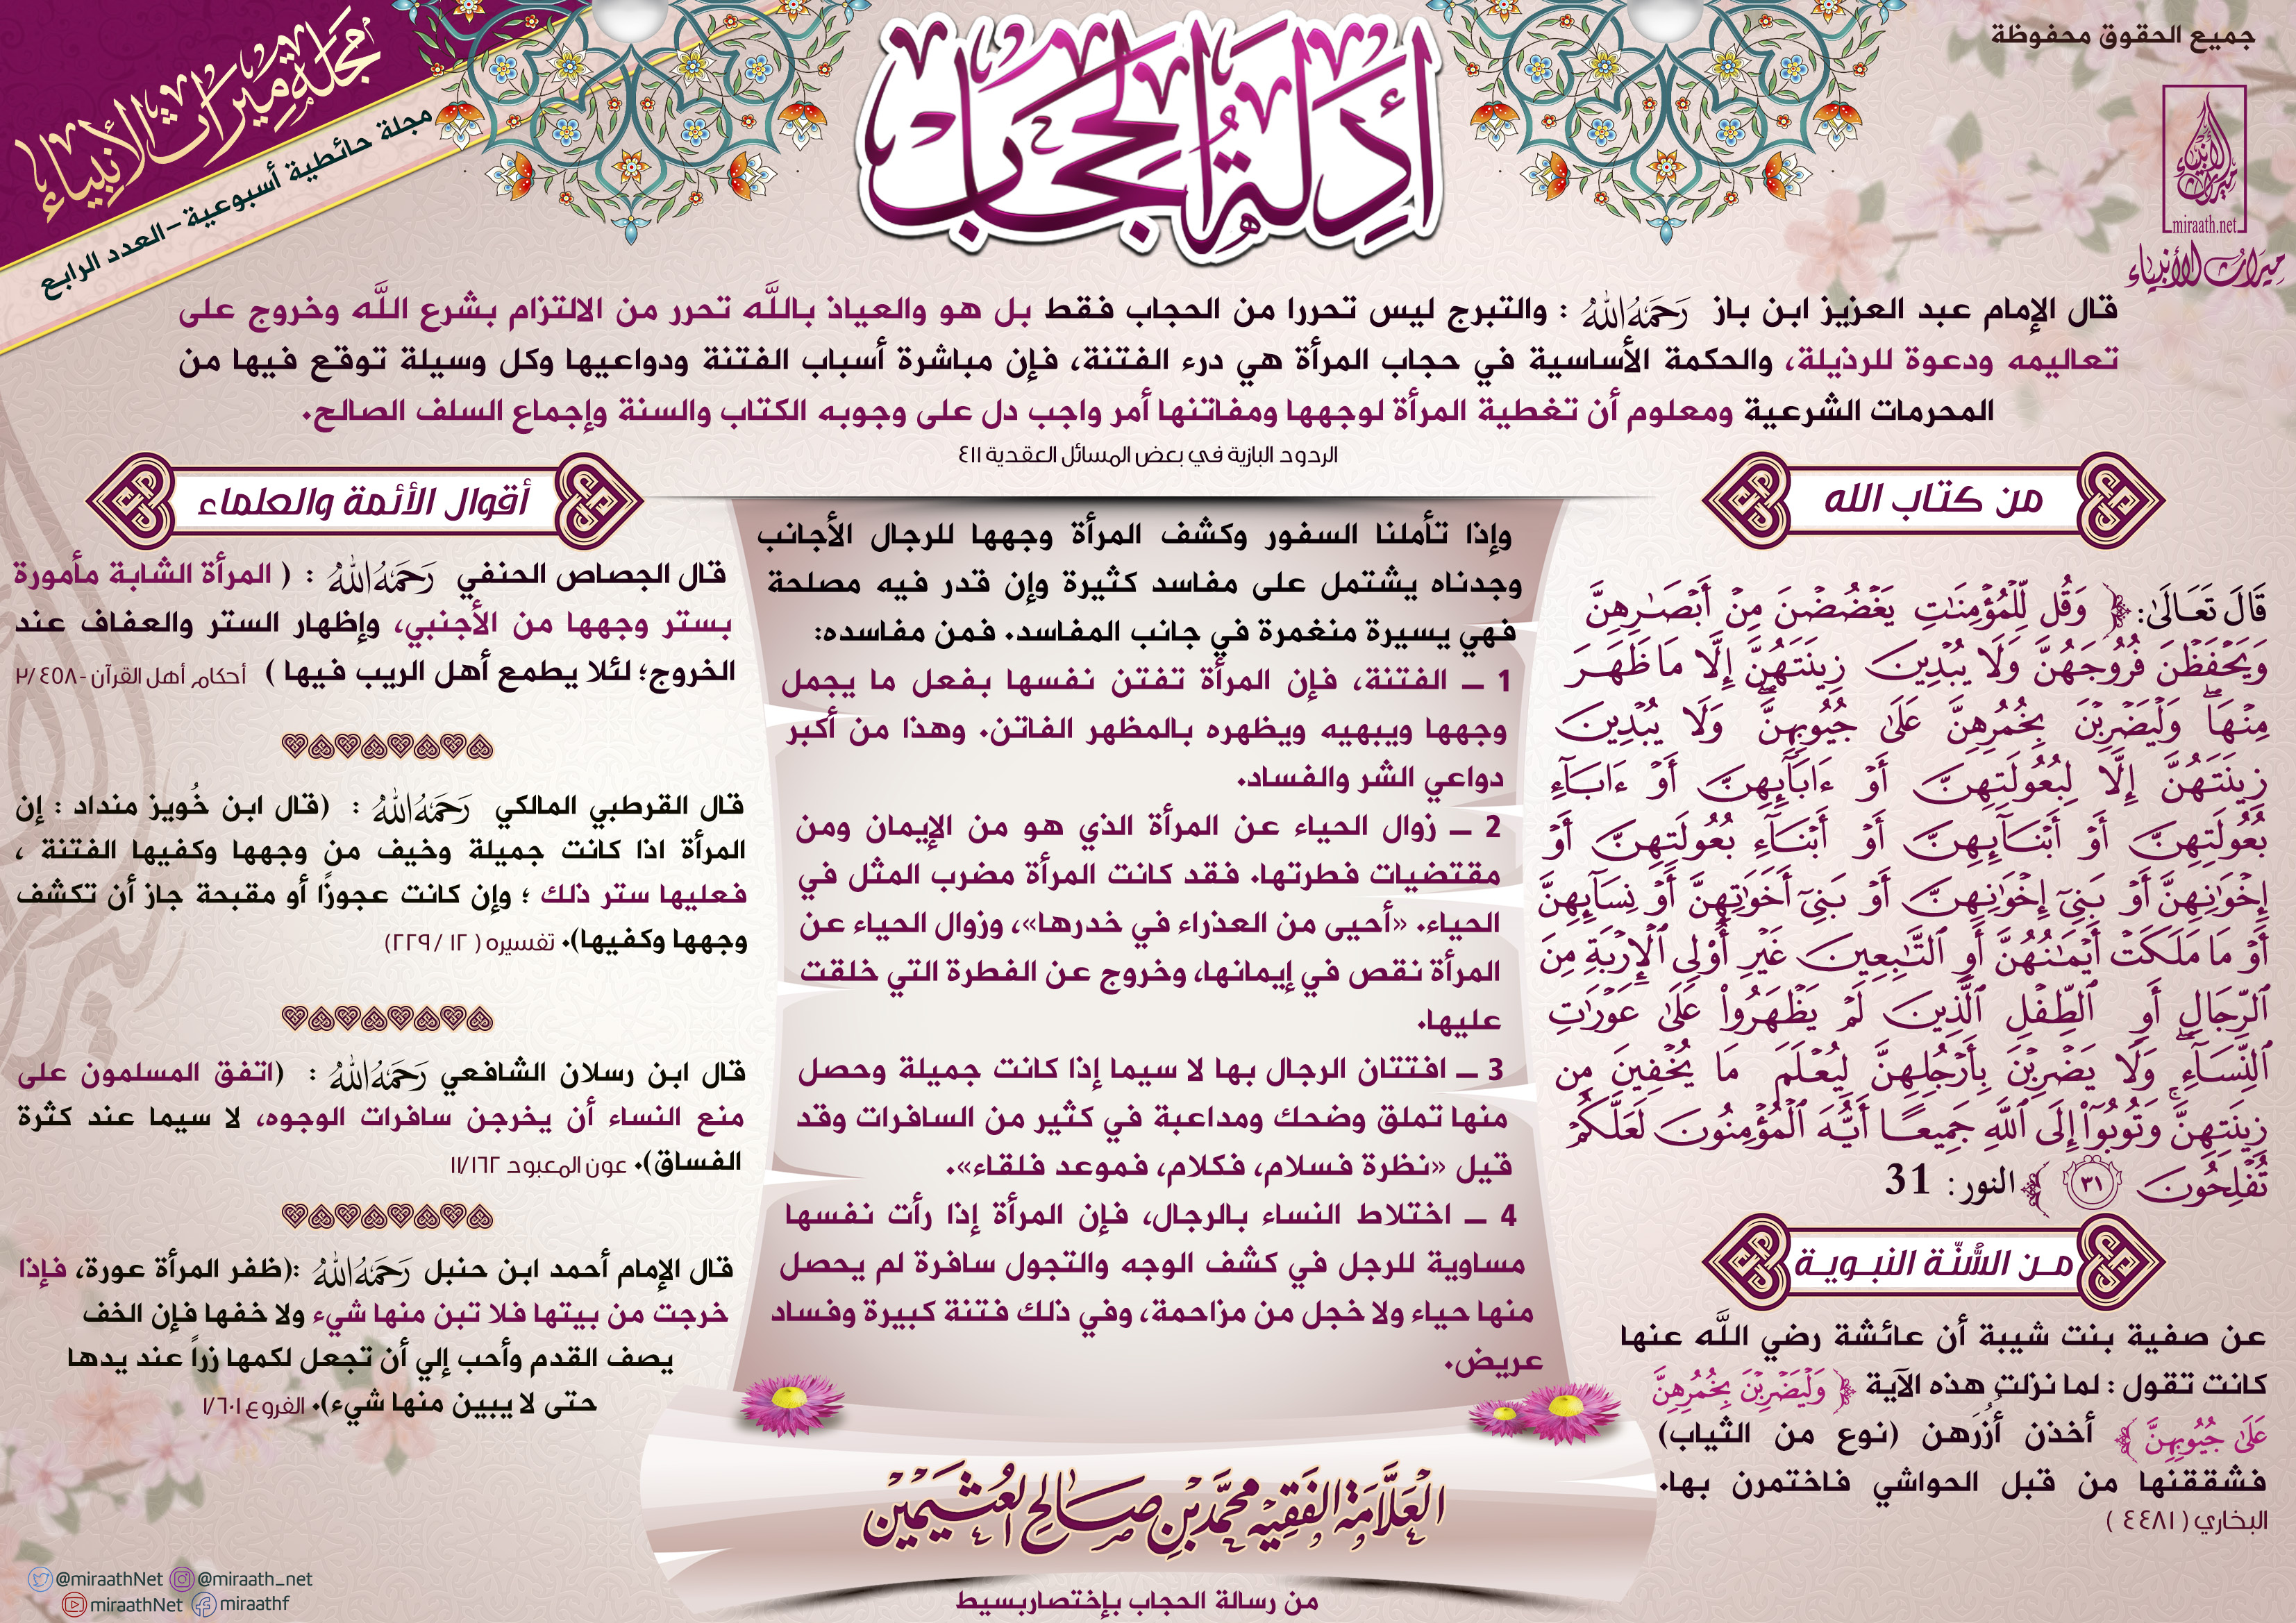 جميع الحقوق محفوظة
ميراث الأنبياء
miraath.net
ميراث الأنبياء
مجلة ميراث الأنبياء
مجلة حائطية أسبوعية - العدد الرابع
أدلة الحجاب
قال الإمام عبد العزيز ابن باز رَحِمَهُ اللهُ : والتبرج ليس تحررا من الحجاب فقط بل هو والعياذ باللَّه تحرر من الالتزام بشرع اللَّه وخروج على
تعاليمه ودعوة للرذيلة، والحكمة الأساسية في حجاب المرأة هي درء الفتنة، فإن مباشرة أسباب الفتنة ودواعيها وكل وسيلة توقع فيها من
المحرمات الشرعية ومعلوم أن تغطية المرأة لوجهها ومفاتنها أمر واجب دل على وجوبه الكتاب والسنة وإجماع السلف الصالح.
الردود البازية في بعض المسائل العقدية ٤١١
من كتاب الله
قَالَ تَعَالَىٰ: ﴿ وَقُل لِّلْمُؤْمِنَٰتِ يَغْضُضْنَ مِنْ أَبْصَٰرِهِنَّ
وَيَحْفَظْنَ فُرُوجَهُنَّ وَلَا يُبْدِينَ زِينَتَهُنَّ إِلَّا مَا ظَهَرَ
مِنْهَا ۖ وَلْيَضْرِبْنَ بِخُمُرِهِنَّ عَلَىٰ جُيُوبِهِنَّ ۖ وَلَا يُبْدِينَ
زِينَتَهُنَّ إِلَّا لِبُعُولَتِهِنَّ أَوْ ءَابَآئِهِنَّ أَوْ ءَابَآءِ
بُعُولَتِهِنَّ أَوْ أَبْنَآئِهِنَّ أَوْ أَبْنَآءِ بُعُولَتِهِنَّ أَوْ
إِخْوَٰنِهِنَّ أَوْ بَنِىٓ إِخْوَٰنِهِنَّ أَوْ بَنِىٓ أَخَوَٰتِهِنَّ أَوْ نِسَآئِهِنَّ
أَوْ مَا مَلَكَتْ أَيْمَٰنُهُنَّ أَوِ ٱلتَّٰبِعِينَ غَيْرِ أُو۟لِى ٱلْإِرْبَةِ مِنَ
ٱلرِّجَالِ أَوِ ٱلطِّفْلِ ٱلَّذِينَ لَمْ يَظْهَرُوا۟ عَلَىٰ عَوْرَٰتِ
ٱلنِّسَآءِ ۖ وَلَا يَضْرِبْنَ بِأَرْجُلِهِنَّ لِيُعْلَمَ مَا يُخْفِينَ مِن
زِينَتِهِنَّ ۚ وَتُوبُوٓا۟ إِلَى ٱللَّهِ جَمِيعًا أَيُّهَ ٱلْمُؤْمِنُونَ لَعَلَّكُمْ
تُفْلِحُونَ ٣١ ﴾ النور: 31
من السُّنّة النبوية
عن صفية بنت شيبة أن عائشة رضي اللَّه عنها
كانت تقول : لما نزلت هذه الآية ﴿ وَلْيَضْرِبْنَ بِخُمُرِهِنَّ
عَلَىٰ جُيُوبِهِنَّ ﴾ أخذن أُزُرَهن (نوع من الثياب)
فشققنها من قبل الحواشي فاختمرن بها.
البخاري ( ٤٤٨١ )
وإذا تأملنا السفور وكشف المرأة وجهها للرجال الأجانب
وجدناه يشتمل على مفاسد كثيرة وإن قدر فيه مصلحة
فهي يسيرة منغمرة في جانب المفاسد. فمن مفاسده:
1 ــ الفتنة، فإن المرأة تفتن نفسها بفعل ما يجمل
وجهها ويبهيه ويظهره بالمظهر الفاتن. وهذا من أكبر
دواعي الشر والفساد.
2 ــ زوال الحياء عن المرأة الذي هو من الإيمان ومن
مقتضيات فطرتها. فقد كانت المرأة مضرب المثل في
الحياء. «أحيى من العذراء في خدرها»، وزوال الحياء عن
المرأة نقص في إيمانها، وخروج عن الفطرة التي خلقت
عليها.
3 ــ افتتان الرجال بها لا سيما إذا كانت جميلة وحصل
منها تملق وضحك ومداعبة في كثير من السافرات وقد
قيل «نظرة فسلام، فكلام، فموعد فلقاء».
4 ــ اختلاط النساء بالرجال، فإن المرأة إذا رأت نفسها
مساوية للرجل في كشف الوجه والتجول سافرة لم يحصل
منها حياء ولا خجل من مزاحمة، وفي ذلك فتنة كبيرة وفساد
عريض.
العَلَّامَة الفَقِيه مُحَمَّد بْن صَالِح العُثَيمِين
من رسالة الحجاب بإختصاربسيط
أقوال الأئمة والعلماء
قال الجصاص الحنفي رَحِمَهُ اللهُ : ( المرأة الشابة مأمورة
بستر وجهها من الأجنبي، وإظهار الستر والعفاف عند
الخروج؛ لئلا يطمع أهل الريب فيها ) أحكام أهل القرآن - ٤٥٨ /٢
قال القرطبي المالكي رَحِمَهُ اللهُ : (قال ابن خُويز منداد : إن
المرأة اذا كانت جميلة وخيف من وجهها وكفيها الفتنة ،
فعليها ستر ذلك ؛ وإن كانت عجوزًا أو مقبحة جاز أن تكشف
وجهها وكفيها). تفسيره ( ١٢ / ٢٢٩)
قال ابن رسلان الشافعي رَحِمَهُ اللهُ : (اتفق المسلمون على
منع النساء أن يخرجن سافرات الوجوه، لا سيما عند كثرة
الفساق). عون المعبود ١١/١٦٢
قال الإمام أحمد ابن حنبل رَحِمَهُ اللهُ :(ظفر المرأة عورة، فإذا
خرجت من بيتها فلا تبن منها شيء ولا خفها فإن الخف
يصف القدم وأحب إلي أن تجعل لكمها زراً عند يدها
حتى لا يبين منها شيء). الفروع ١/٦٠١
@miraathNet @miraath_net
miraathNet miraathf